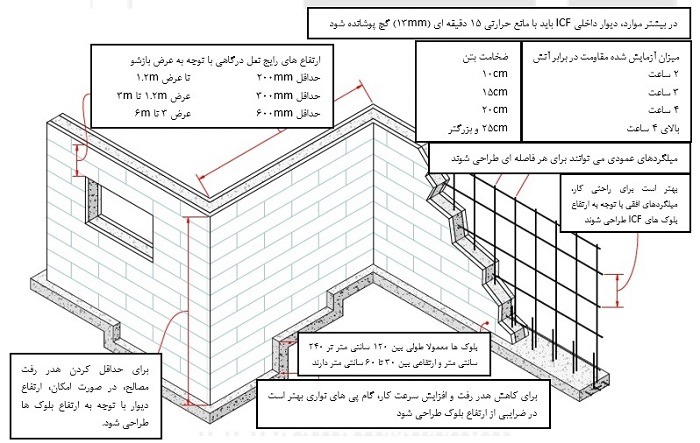 در بیشتر موارد، دیوار داخلی ICF باید با مانع حرارتی ۱۵ دقیقه ای (۱۳mm) گچ پوشانده شود
ارتفاع های رایج نعل درگاهی با توجه به عرض بازشو
حداقل ۲۰۰mm تا عرض ۱.۲m
حداقل ۳۰۰mm عرض ۱.۲m تا ۳m
حداقل ۶۰۰mm عرض ۳ تا ۶m
میزان آزمایش شده مقاومت در برابر آتش ضخامت بتن
۲ ساعت ۱۰cm
۳ ساعت ۱۵cm
۴ ساعت ۲۰cm
بالای ۴ ساعت ۲۵cm و بزرگتر
میلگردهای عمودی می توانند برای هر فاصله ای طراحی شوند
بهتر است برای راحتی کار،
میلگردهای افقی با توجه به ارتفاع
بلوک های ICF طراحی شوند
بلوک ها معمولا طولی بین ۱۲۰ سانتی متر تر ۲۴۰
سانتی متر و ارتفاعی بین ۳۰ تا ۶۰ سانتی متر دارند
برای حداقل کردن هدر رفت
مصالح، در صورت امکان، ارتفاع
دیوار با توجه به ارتفاع بلوک ها
طراحی شود.
برای کاهش هدر رفت و افزایش سرعت کار، گام پی های نواری بهتر است
در ضرایبی از ارتفاع بلوک طراحی شود